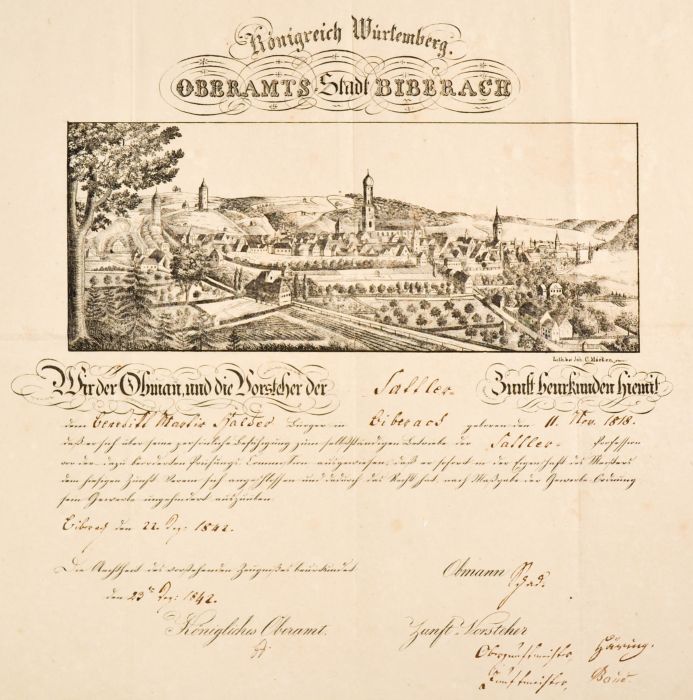 Königreich Würtemberg.
OBERAMTS-Stadt BIBERACH
Lith. bei Joh. C. Mäcken, jun.
Wir der Obman, und die Vorsteher der Sattler- Zunft beurkunden hiemit
dem Benedikt Martin Halder Burger in Biberach geboren den 11. Nov. 1818.
daß er sich über seine persönliche Befähigung zum selbstständigen Betriebe der Sattler- Profession
vor der dazu beorderten Prüfungs-Commission ausgewiesen, daß er sofort in der Eigenschaft des Meisters
dem hiesigen Zunft-Verein sich angeschlossen und dadurch das Recht hat, nach Maßgabe der Gewerbe-Ordnung
sein Gewerbe ungehindert auszuüben.
Biberach den 22. Dez. 1842.
Die Aechtheit des vorstehenden Zeugnißes beurkundet
den 23ten Dez. 1842.
Königliches Oberamt.
Obmann Schad.
Zunft-Vorsteher
Oberzunftmeister, Häring.
Zunftmeister,